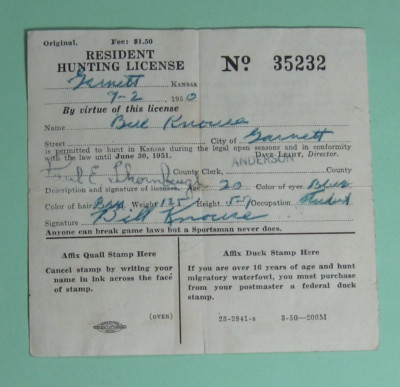 Original. Fee: $1.50
RESIDENT
HUNTING LICENSE
No 35232
Garnett Kansas
9-2 1950
By virtue of this license
Name Bill Knouse
Street City of Garnett
is permitted to hunt in Kansas during the legal open seasons and in conformity
with the law until June 30, 1951. Dave Leahy, Director.
County Clerk, ANDERSON County
Description and signature of licensee, Age 20 Color of eyes Blue
Color of hair Weight 135 Height 5-9 Occupation Student
Signature Bill Knouse
Anyone can break game laws but a Sportsman never does.
Affix Quail Stamp Here
Cancel stamp by writing your
name in ink across the face
of stamp.
(OVER)
Affix Duck Stamp Here
If you are over 16 years of age and hunt
migratory waterfowl, you must purchase
from your postmaster a federal duck
stamp.
23-2841-s 3-50—200M